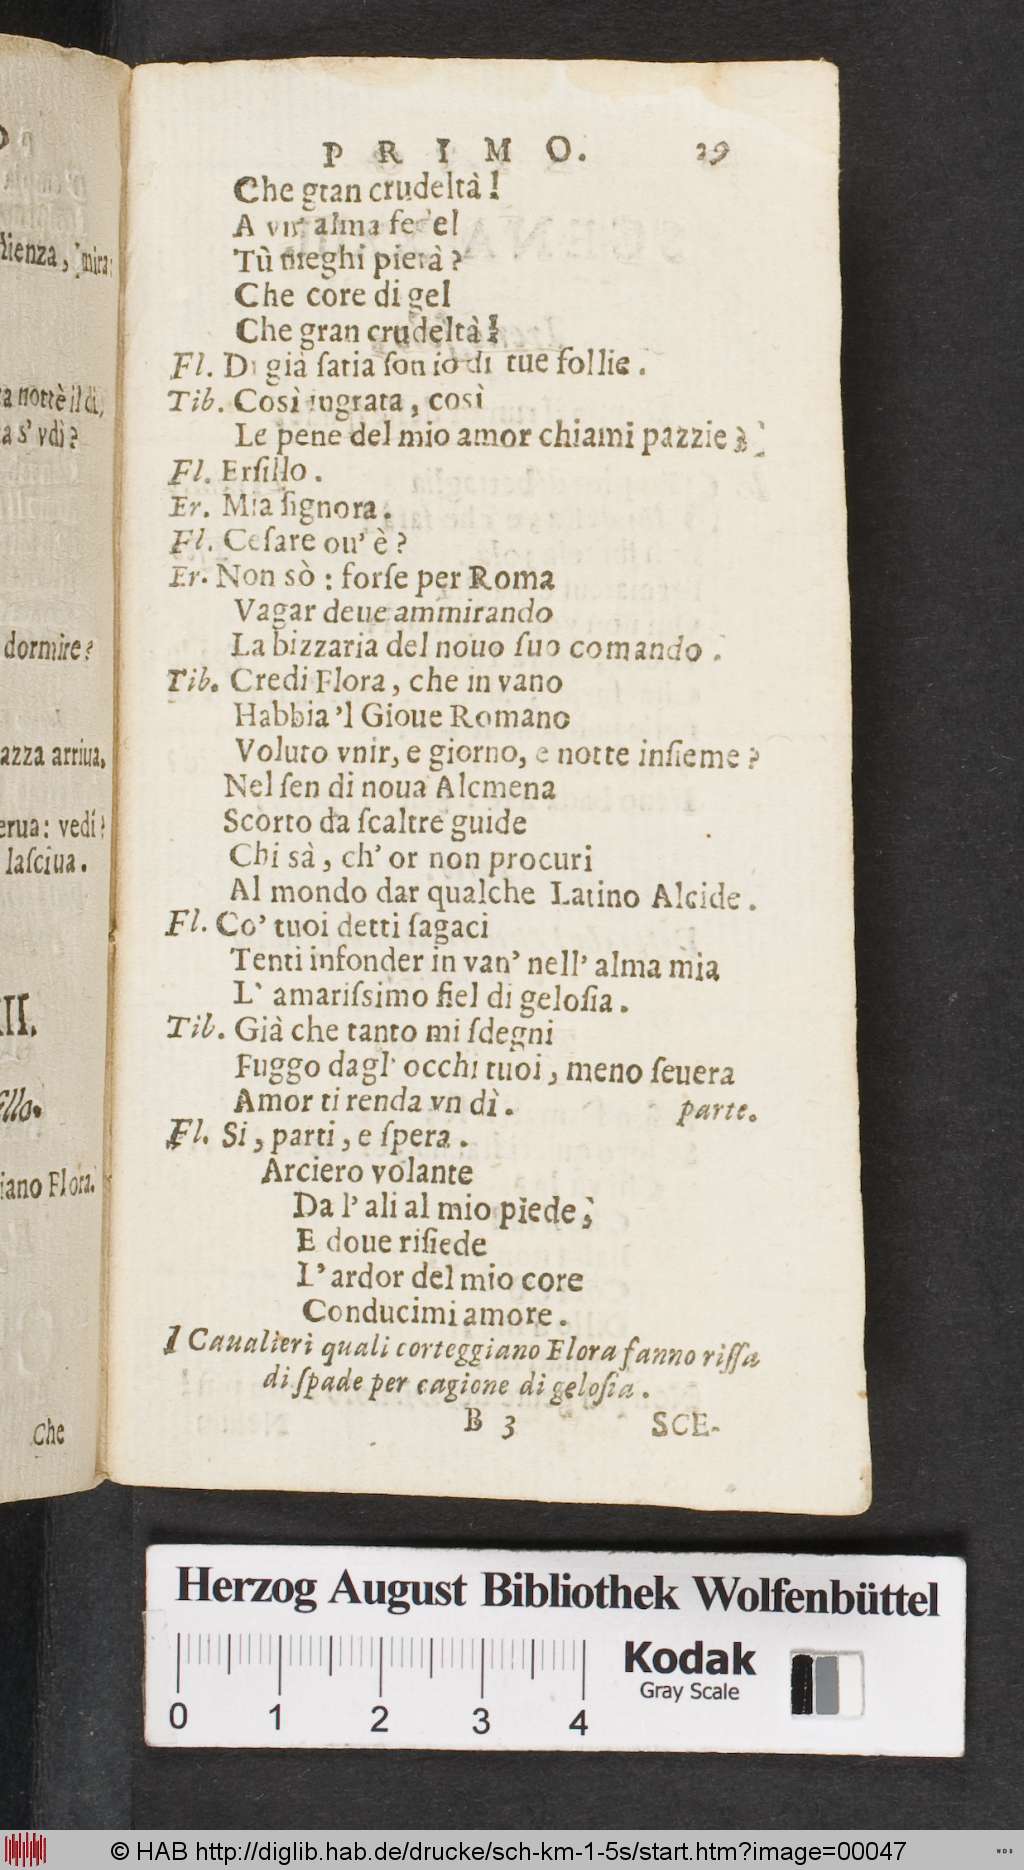 dienza, mira:
a nottè il dì,
a s' vdì?
dormire?
azza arriua.
erua: vedi?
lasciua.
II.
illo.
iano Flora.
Che
PRIMO. 29
Che gran crudeltà!
A vn' alma fedel
Tù nieghi pietà?
Che core di gel
Che gran crudeltà!
Fl. Di già ſatia ſon io di tue follie.
Tib. Così ingrata, così
Le pene del mio amor chiami pazzie?
Fl. Erſillo.
Er. Mia ſignora.
Fl. Ceſare ou' è?
Er. Non sò: forſe per Roma
Vagar deue ammirando
La bizzaria del nouo ſuo comando.
Tib. Credi Flora, che in vano
Habbia 'l Gioue Romano
Voluto vnir, e giorno, e notte inſieme?
Nel ſen di noua Alcmena
Scorto da ſcaltre guide
Chi sà, ch' or non procuri
Al mondo dar qualche Latino Alcide.
Fl. Co' tuoi detti ſagaci
Tenti infonder in van' nell' alma mia
L' amariſsimo fiel di geloſia.
Tib. Già che tanto mi ſdegni
Fuggo dagl' occhi tuoi, meno ſeuera
Amor ti renda vn dì. parte.
Fl. Si, parti, e ſpera.
Arciero volante
Da l' ali al mio piede,
E doue riſiede
L' ardor del mio core
Conducimi amore.
I Caualieri quali corteggiano Flora fanno riſſa
di ſpade per cagione di geloſia.
B 3 SCE-
Herzog August Bibliothek Wolfenbüttel
Kodak
Gray Scale
0 1 2 3 4
© HAB http://diglib.hab.de/drucke/sch-km-1-5s/start.htm?image=00047